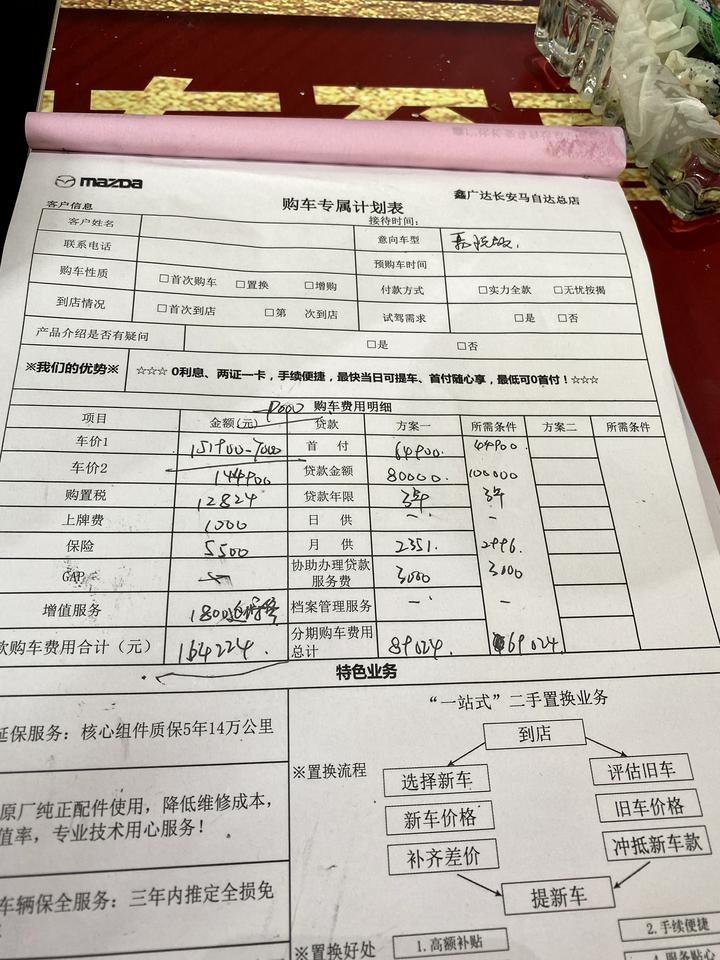 mazda
购车专属计划表
鑫广达长安马自达总店
客户信息
接待时间:
客户姓名 意向车型
联系电话 预购车时间
购车性质 □首次购车 □置换 □增购 付款方式 □实力全款 □无忧按揭
到店情况 □首次到店 □第 次到店 试驾需求 □是 □否
产品介绍是否有疑问 □是 □否
※我们的优势※ ☆☆☆ 0利息、两证一卡，手续便捷，最快当日可提车、首付随心享，最低可0首付！☆☆☆
购车费用明细
项目 金额(元) 贷款 方案一 所需条件 方案二 所需条件
车价1 151900-7000 首 付 64900. 44900.
车价2 144900 贷款金额 80000. 100000
购置税 12824 贷款年限 3年 3年
上牌费 1000 日 供 - -
保险 5500 月 供 2351. 2996.
GAP 协助办理贷款服务费 3000 3000
增值服务 1800 档案管理服务 - -
款购车费用合计（元） 164224. 分期购车费用总计 89024. 69024.
特色业务
延保服务：核心组件质保5年14万公里
原厂纯正配件使用，降低维修成本，
值率，专业技术用心服务！
车辆保全服务：三年内推定全损免
“一站式”二手置换业务
※置换流程
到店
选择新车 评估旧车
新车价格 旧车价格
补齐差价 冲抵新车款
提新车
※置换好处
1.高额补贴 2.手续便捷
4.服务贴心